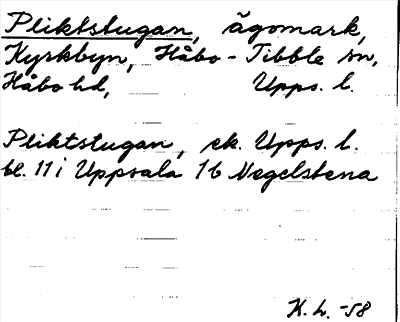 Pliktstugan, ägomark,
Kyrkbyn, Håbo-Tibble sn,
Håbo hd, Upps. l.
Pliktstugan, ek. Upps. l.
bl. 11 i Uppsala 1b Negelstena
K. L. -58